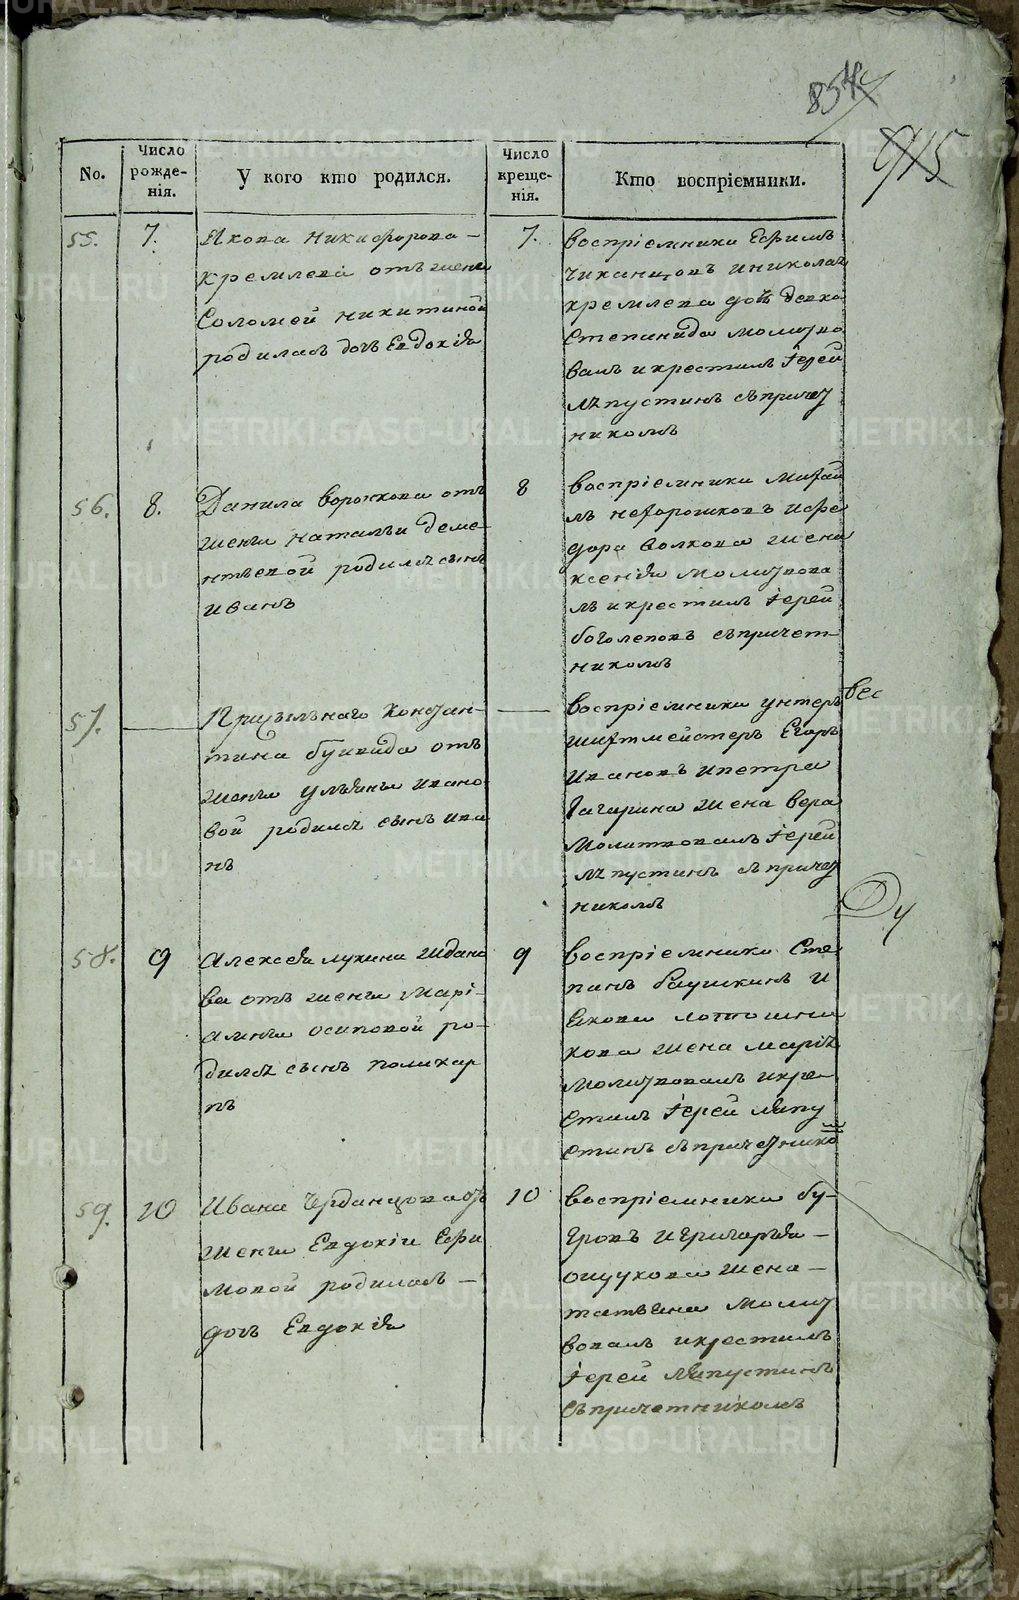 854
915
No.
Число рожде-нія.
У кого кто родился.
Число креще-нія.
Кто воспріемники.
55.
7.
Якова Никифорова
кремлева отъ жены
Соломеи никитиной
родилась дочь Евдокія
7.
воспріемники Ефимъ
чиканцовъ иниколая
кремлева дочь девка
Степанида молитво
валъ икрестилъ Іерей
ляпустинъ съпричет
никомъ
56.
8.
Данила воронкова отъ
жены наталъи деме
нтьевой родился сынъ
иванъ
8
воспріемники михаи
лъ нехорошковъ ифе
дора волкова жена
ксенія молитвова
лъ икрестилъ Іерей
боголеповъ съпричет
никомъ
57.
Приезжаго констан
тина буивида отъ
жены ульяны ивано
вой родился сынъ ива
нъ
воспріемники унтеръ
шихтмейстеръ Егоръ
ивановъ ипетра
гагарина жена вера
молитвовалъ Іерей
ляпустинъ съпричет
никомъ
вес
Ду
58.
9
алексея лукина ждано
ва отъ жены Марі
амны осиповой ро
дился сынъ поликар
пъ
9
воспріемники Сте
панъ баушкинъ и
якова лотошни
кова жена марія
молитвовалъ икре
стилъ Іерей ляпу
стинъ съпричетнико
59.
10
Ивана Черданцова отъ
жены Евдокіи Ефи
мовой родилась
дочь Евдокія
10
воспріемники бу-
гровъ игригорья
ощукова жена
татьяна молит
вовалъ икрестилъ
Іерей ляпустинъ
съпричетникомъ
METRIKI.GASO-URAL.RU